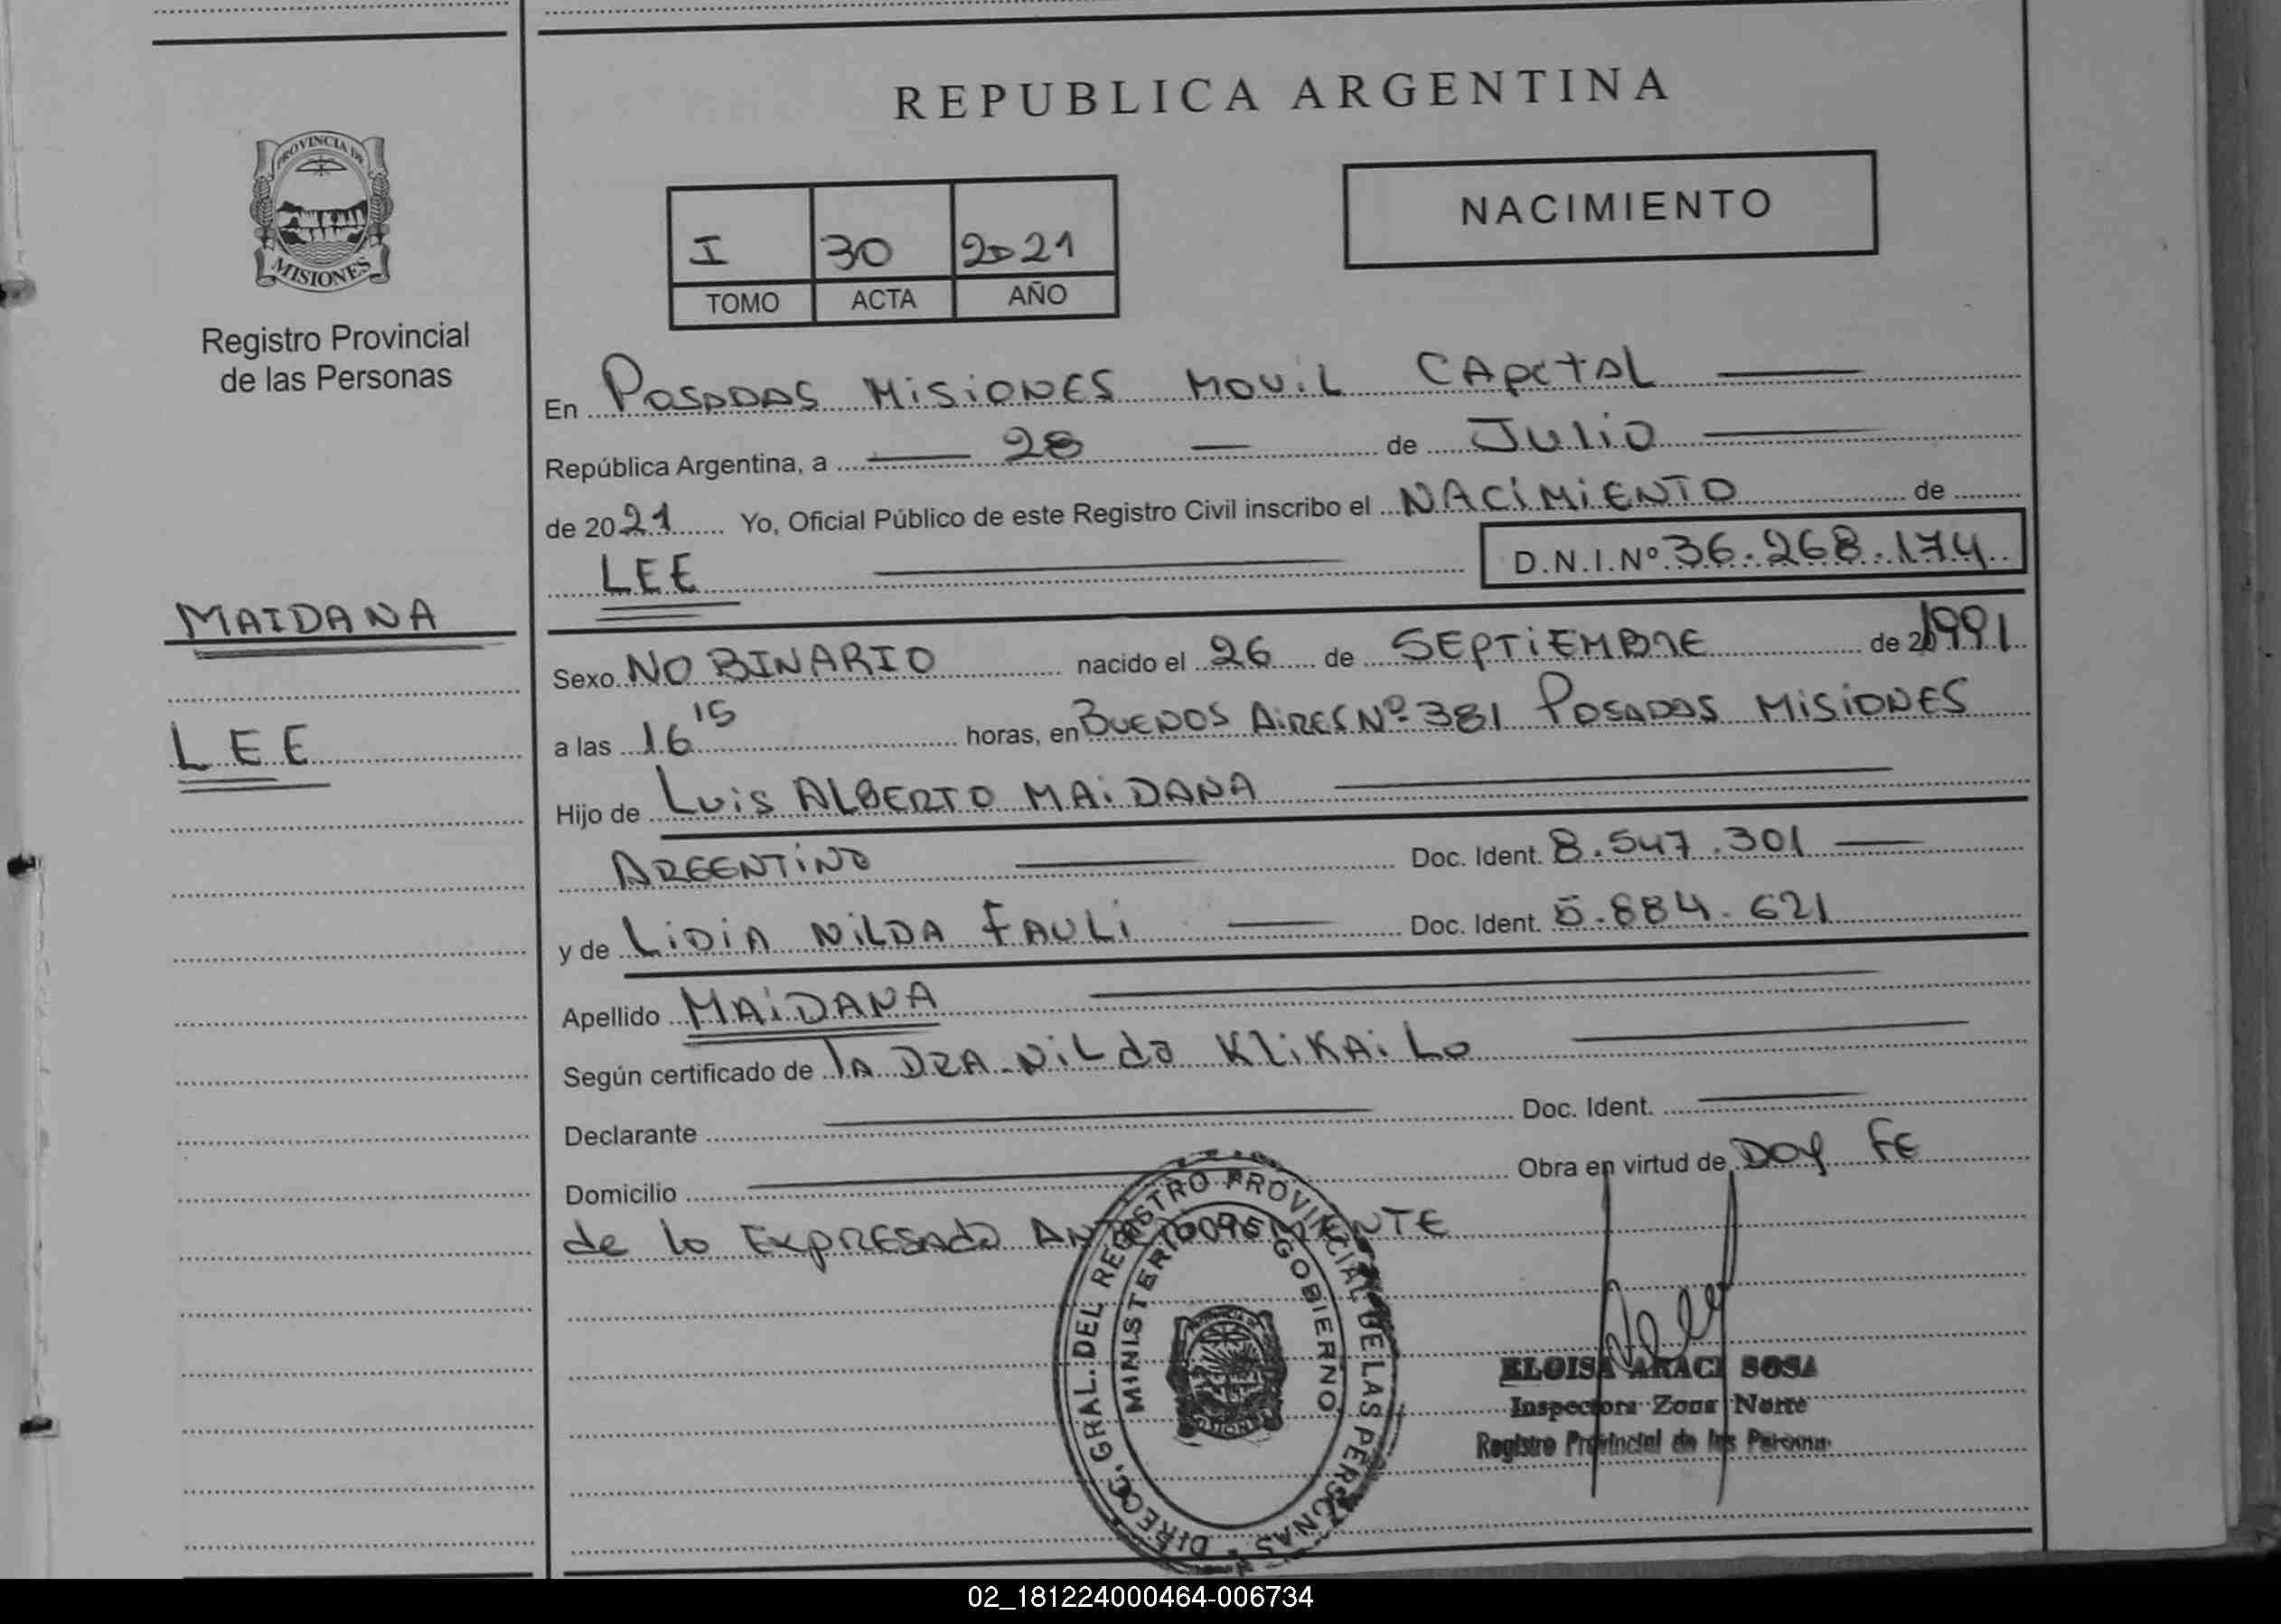 REPUBLICA ARGENTINA
PROVINCIA DE
MISIONES
Registro Provincial
de las Personas
NACIMIENTO
I 30 2021
TOMO ACTA AÑO
En POSADAS MISIONES MOVIL CAPITAL
República Argentina, a 28 de JULIO
de 2021 Yo, Oficial Público de este Registro Civil inscribo el NACIMIENTO de
LEE
D.N.I.Nº 36.268.174
MAIDANA
LEE
Sexo NO BINARIO nacido el 26 de SEPTIEMBRE de 1991
a las 16 15 horas, en BUENOS AIRES Nº 381 POSADAS MISIONES
Hijo de LUIS ALBERTO MAIDANA
ARGENTINO Doc. Ident. 8.547.301
y de LIDIA NILDA FAULI Doc. Ident. 5.884.621
Apellido MAIDANA
Según certificado de LA DRA. NILDA KLIKAILO
Declarante Doc. Ident.
Domicilio Obra en virtud de DOY FE
de lo EXPRESADO ANTERIORMENTE
DIRECC. GRAL. DEL REGISTRO PROVINCIAL DE LAS PERSONAS
MINISTERIO GOBIERNO
MISIONES
ELOISA ARACI SOSA
Inspectora Zona Norte
Registro Provincial de las Personas
02_181224000464-006734